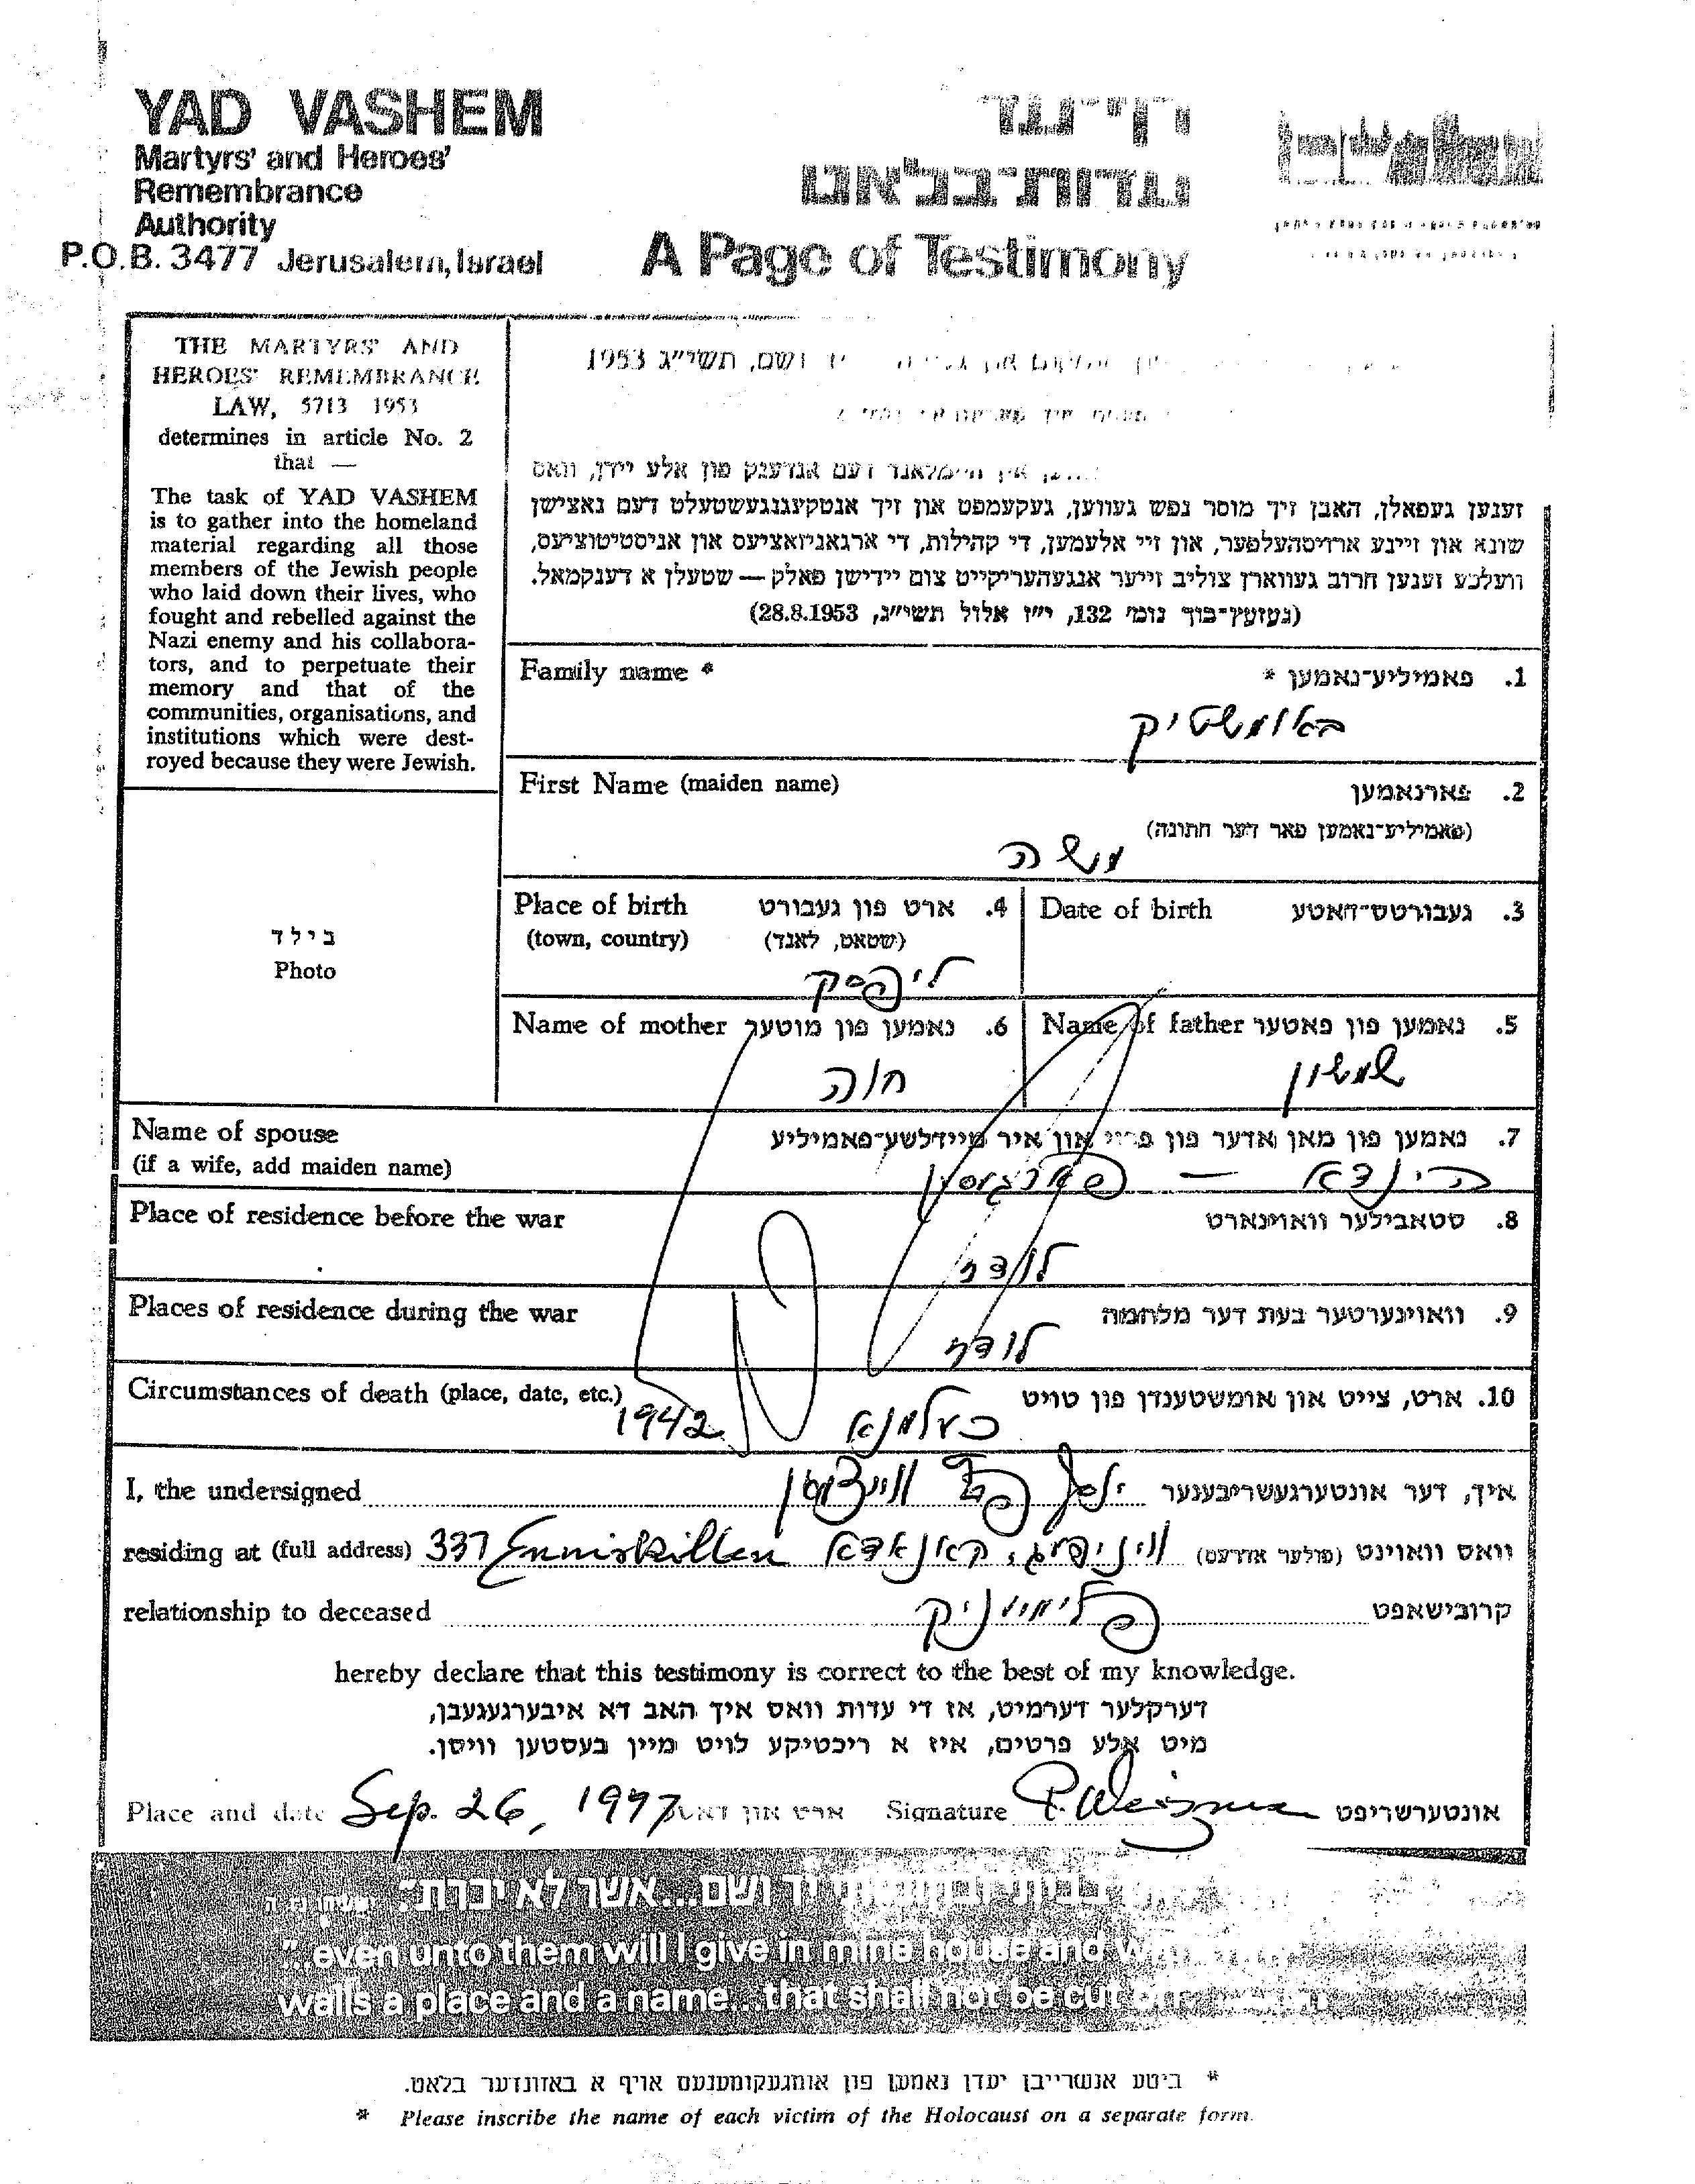 YAD VASHEM
Martyrs' and Heroes'
Remembrance
Authority
P.O.B. 3477 Jerusalem, Israel
דף־עד
עדות־בלאט
A Page of Testimony
THE MARTYRS' AND
HEROES' REMEMBRANCE
LAW, 5713 1953
determines in article No. 2
that —
The task of YAD VASHEM
is to gather into the homeland
material regarding all those
members of the Jewish people
who laid down their lives, who
fought and rebelled against the
Nazi enemy and his collabora-
tors, and to perpetuate their
memory and that of the
communities, organisations, and
institutions which were dest-
royed because they were Jewish.
ושם, תשי״ג 1953
אין היימלאנד דעם אנדענק פון אלע יידן, וואס
זענען געפאלן, האבן זיך מוסר נפש געווען, געקעמפט און זיך אנטקעגנגעשטעלט דעם נאצישן
שונא און זיינע ארויסהעלפער, און זיי אלעמען, די קהילות, די ארגאניזאציעס און אינסטיטוציעס,
וועלכע זענען חרוב געווארן צוליב זייער אנגעהעריקייט צום יידישן פאלק — שטעלן א דענקמאל.
(געזעץ־בוך נומ׳ 132, י״ז אלול תשי״ג, 28.8.1953)
Family name * 1. פאמיליע־נאמען *
באומשטיק
First Name (maiden name) 2. פארנאמען
(פאמיליע־נאמען פאר דער חתונה)
משה
בילד
Photo
Place of birth 4. ארט פון געבורט
(town, country) (שטאט, לאנד)
ליפסק
Date of birth 3. געבורטס־דאטע
Name of mother 6. נאמען פון מוטער
חוה
Name of father 5. נאמען פון פאטער
שמשון
Name of spouse 7. נאמען פון מאן אדער פון פרוי און איר מיידלשע־פאמיליע
(if a wife, add maiden name)
הינדא —
Place of residence before the war 8. סטאבילער וואוינארט
לודז
Places of residence during the war 9. וואוינערטער בעת דער מלחמה
לודז
Circumstances of death (place, date, etc.) 10. ארט, צייט און אומשטענדן פון טויט
כעלמנא 1942
I, the undersigned איך, דער אונטערגעשריבענער
וויצמאן
residing at (full address) 337 Enniskillen וויניפעג, קאנאדא וואס וואוינט (פולער אדרעס)
relationship to deceased פלימעניק קרובישאפט
hereby declare that this testimony is correct to the best of my knowledge.
דערקלער דערמיט, אז די עדות וואס איך האב דא איבערגעגעבן,
מיט אלע פרטים, איז א ריכטיקע לויט מיין בעסטען וויסן.
Place and date Sep. 26, 1997 ארט און דאטע Signature P. Weizman אונטערשריפט
יד ושם...אשר לא יכרת״.
"...even unto them will I give in mine house and
walls a place and a name...that shall not be cut off
* ביטע אנשרייבן יעדן נאמען פון אומגעקומענעם אויף א באזונדער בלאט.
* Please inscribe the name of each victim of the Holocaust on a separate form.